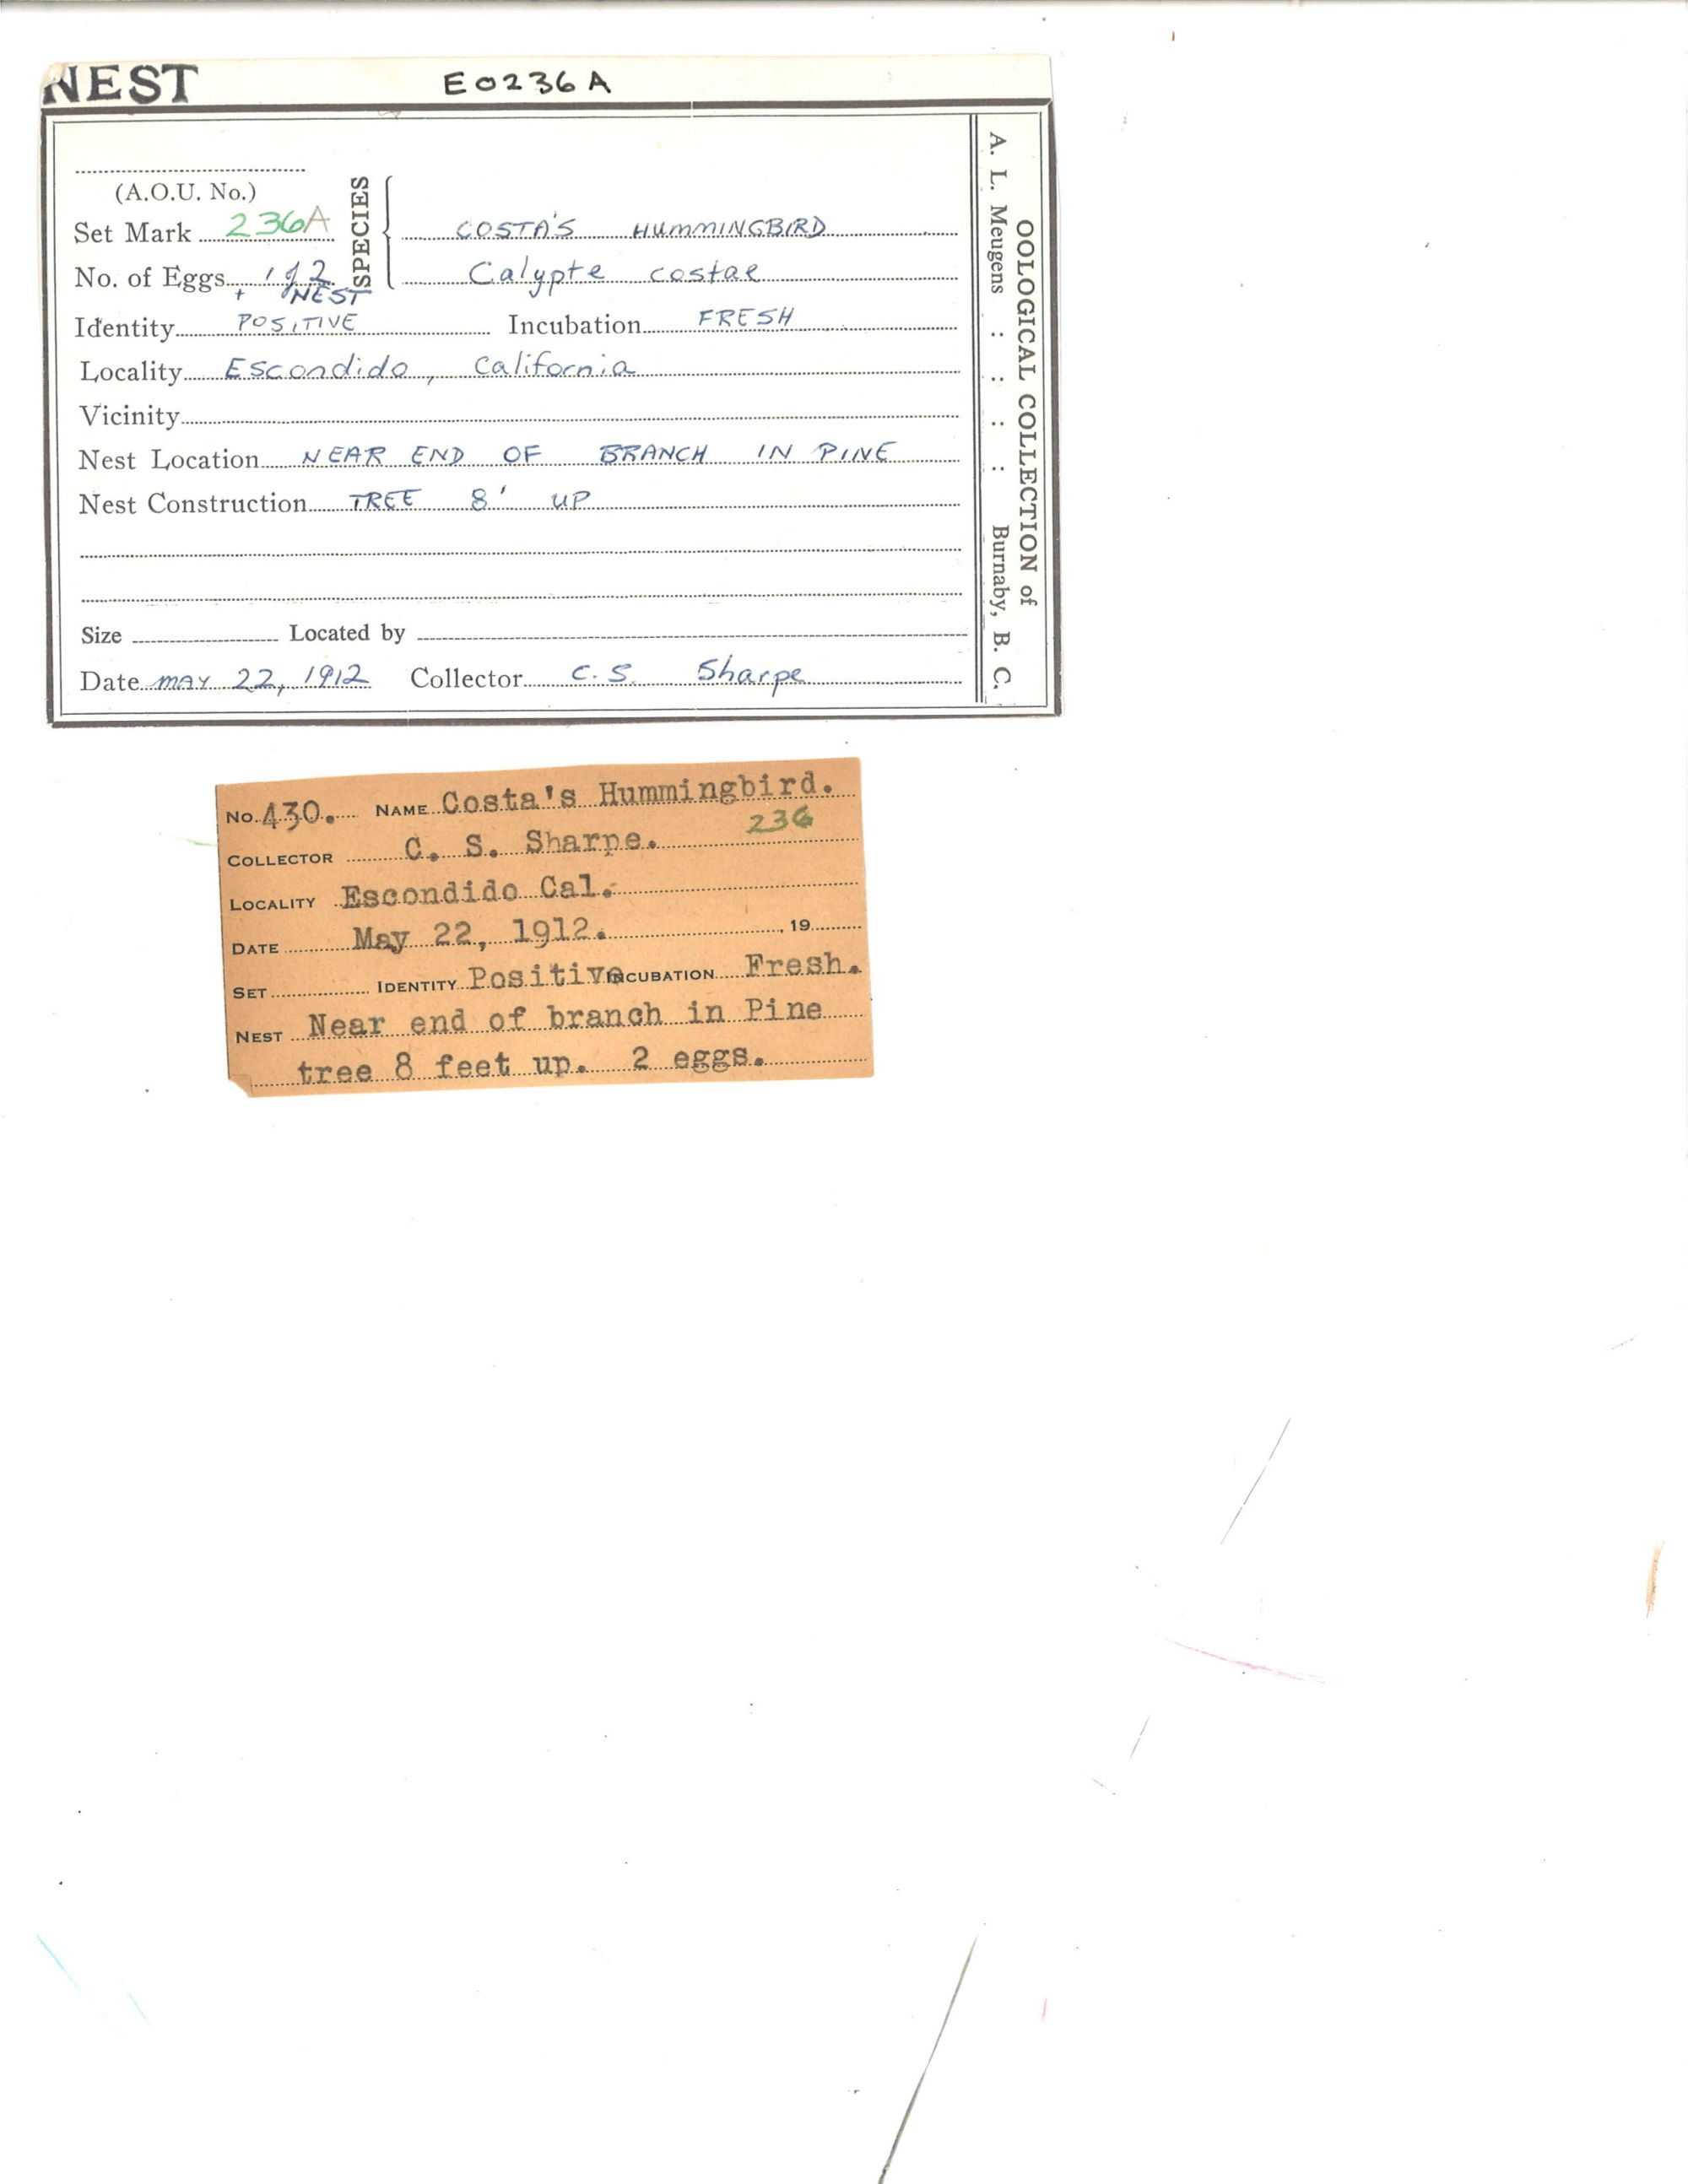 NEST E0236A
(A.O.U. No.)
Set Mark 236A
SPECIES
COSTA'S HUMMINGBIRD
No. of Eggs 1/2
+ NEST
Calypte costae
Identity POSITIVE Incubation FRESH
Locality Escondido, California
Vicinity
Nest Location NEAR END OF BRANCH IN PINE
Nest Construction TREE 8' UP
Size Located by
Date MAY 22, 1912 Collector C. S. Sharpe
OOLOGICAL COLLECTION of
A. L. Meugens : : : : Burnaby, B. C.
No. 430. NAME Costa's Hummingbird.
236
COLLECTOR C. S. Sharpe.
LOCALITY Escondido Cal.
DATE May 22, 1912. , 19
SET IDENTITY Positive INCUBATION Fresh.
NEST Near end of branch in Pine
tree 8 feet up. 2 eggs.